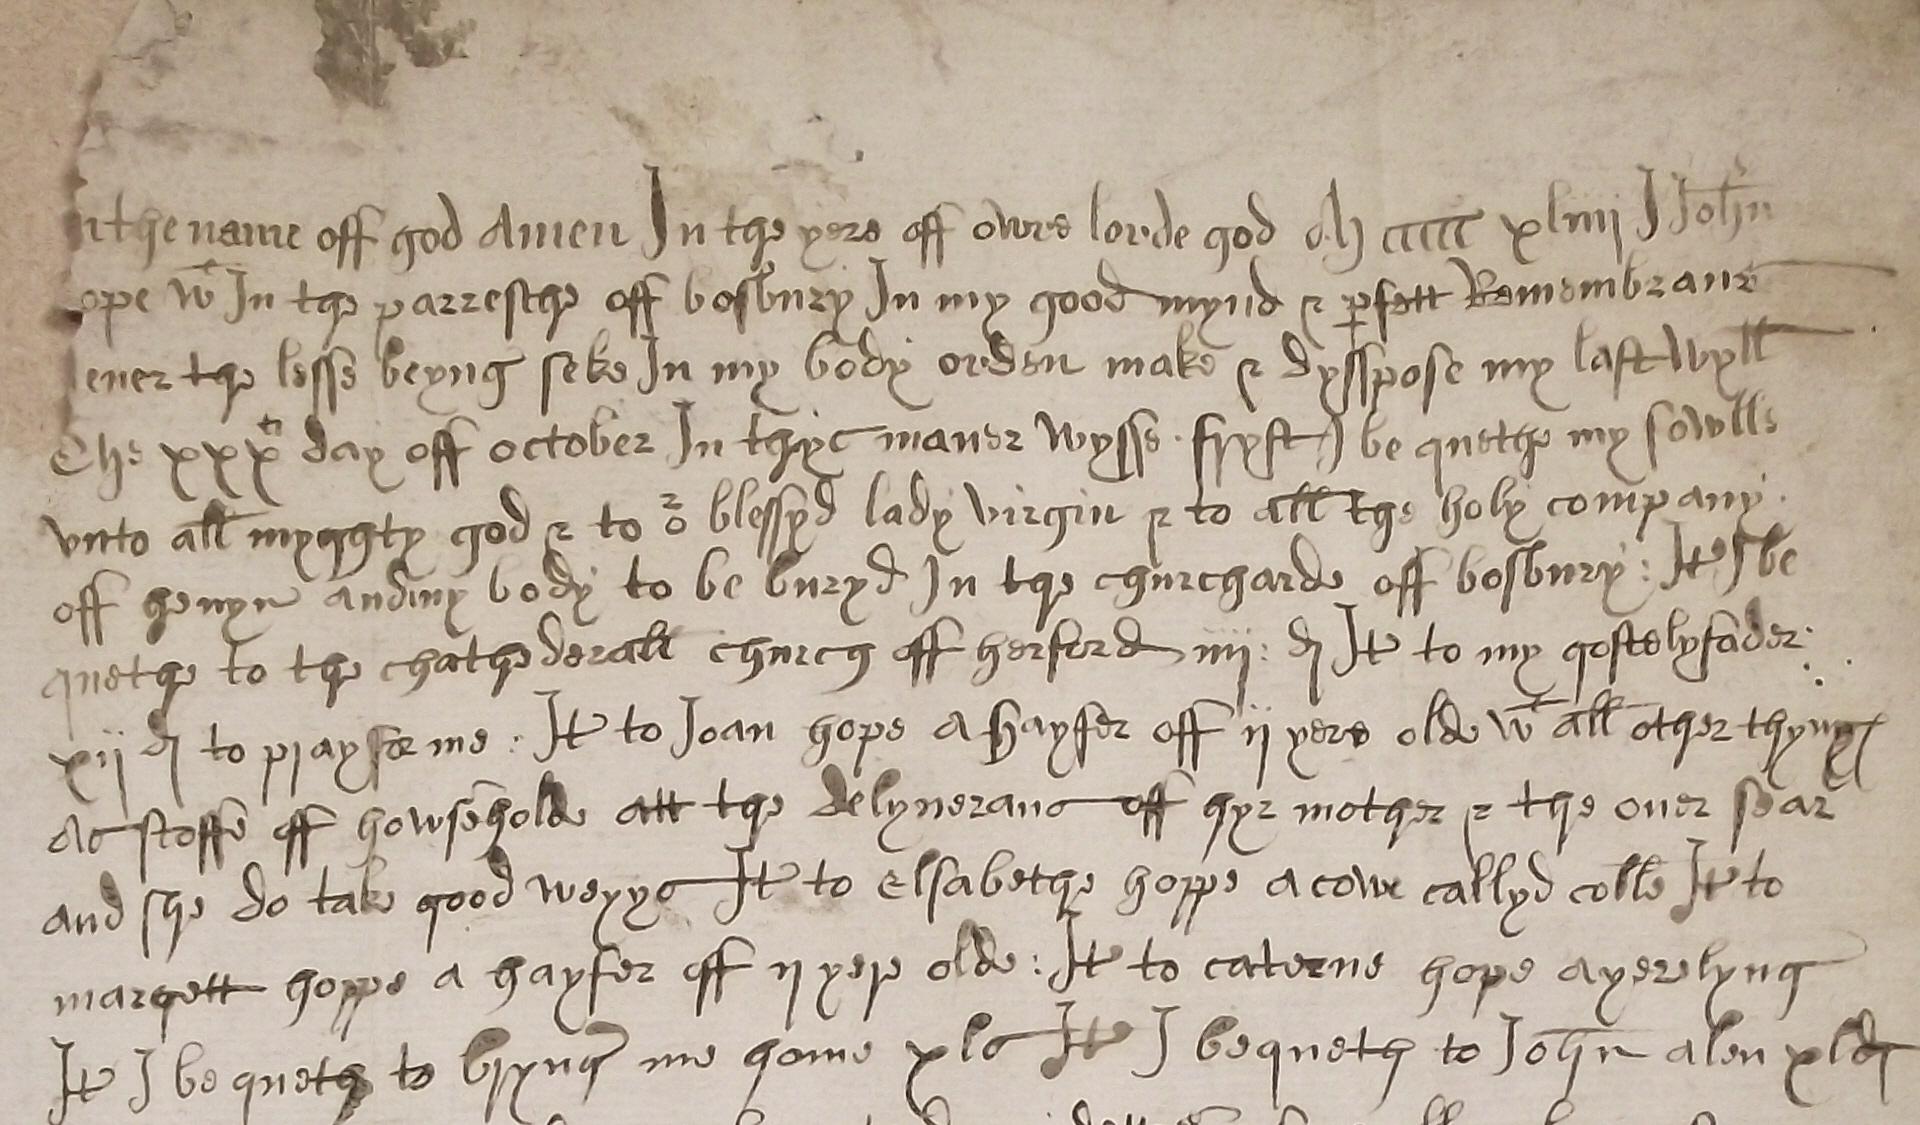 n the name off god Amen In the yere off owre lorde god M ccccc xliiij I John
ope wt In the parresche off bosbury In my good mynd & pfett Remembranc
ener the lesse beyng seke In my body orden make & dysspose my last wyll
The xxxth day off october In thys maner wysse . fryst I be quethe my sowlle
vnto all myghty god & to or blessyd lady virgin & to all the holy company .
off henyn and my body to be buryd In the churcharde off bosbury : It I be
quethe to the chathederall church off herford iiij : d It to my gostely fader :
xij d to pray for me : It to Joan hope a hayfer off ij yere olde wt all other thynges
As stoffe off howseholde att the delynerans off hyr mother & the ouer sear
and she do take good weyys It to elsabethe hoppe a cow callyd colle It to
margett hoppe a hayfer off ij yere olde : It to caterne hope a yerelyng
It I be queth to bryng me home xls It I bequeth to John alen xld